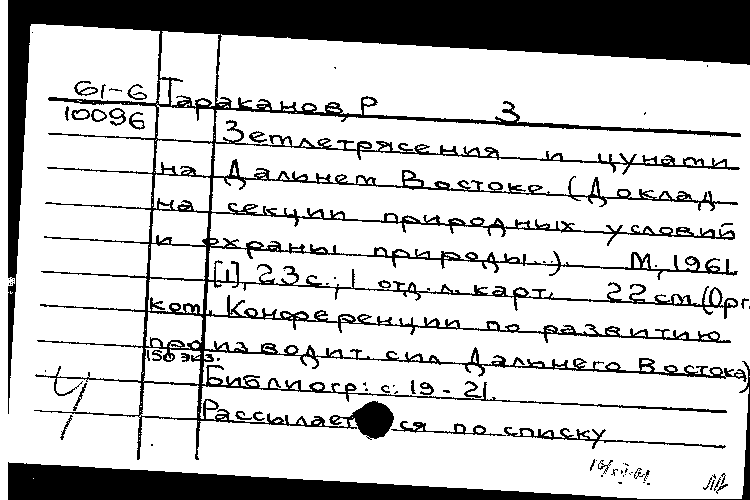 61-6 Тараканов, Р 3
10096
Землетрясения и цунами
на Дальнем Востоке. (Доклад
на секции природных условий
и охраны природы...). М., 1961.
[1], 23 с.; 1 отд. л. карт. 22 см. (Орг.
ком. Конференции по развитию
производит. сил Дальнего Востока)
150 экз.
Библиогр: с. 19-21.
Рассылается по списку